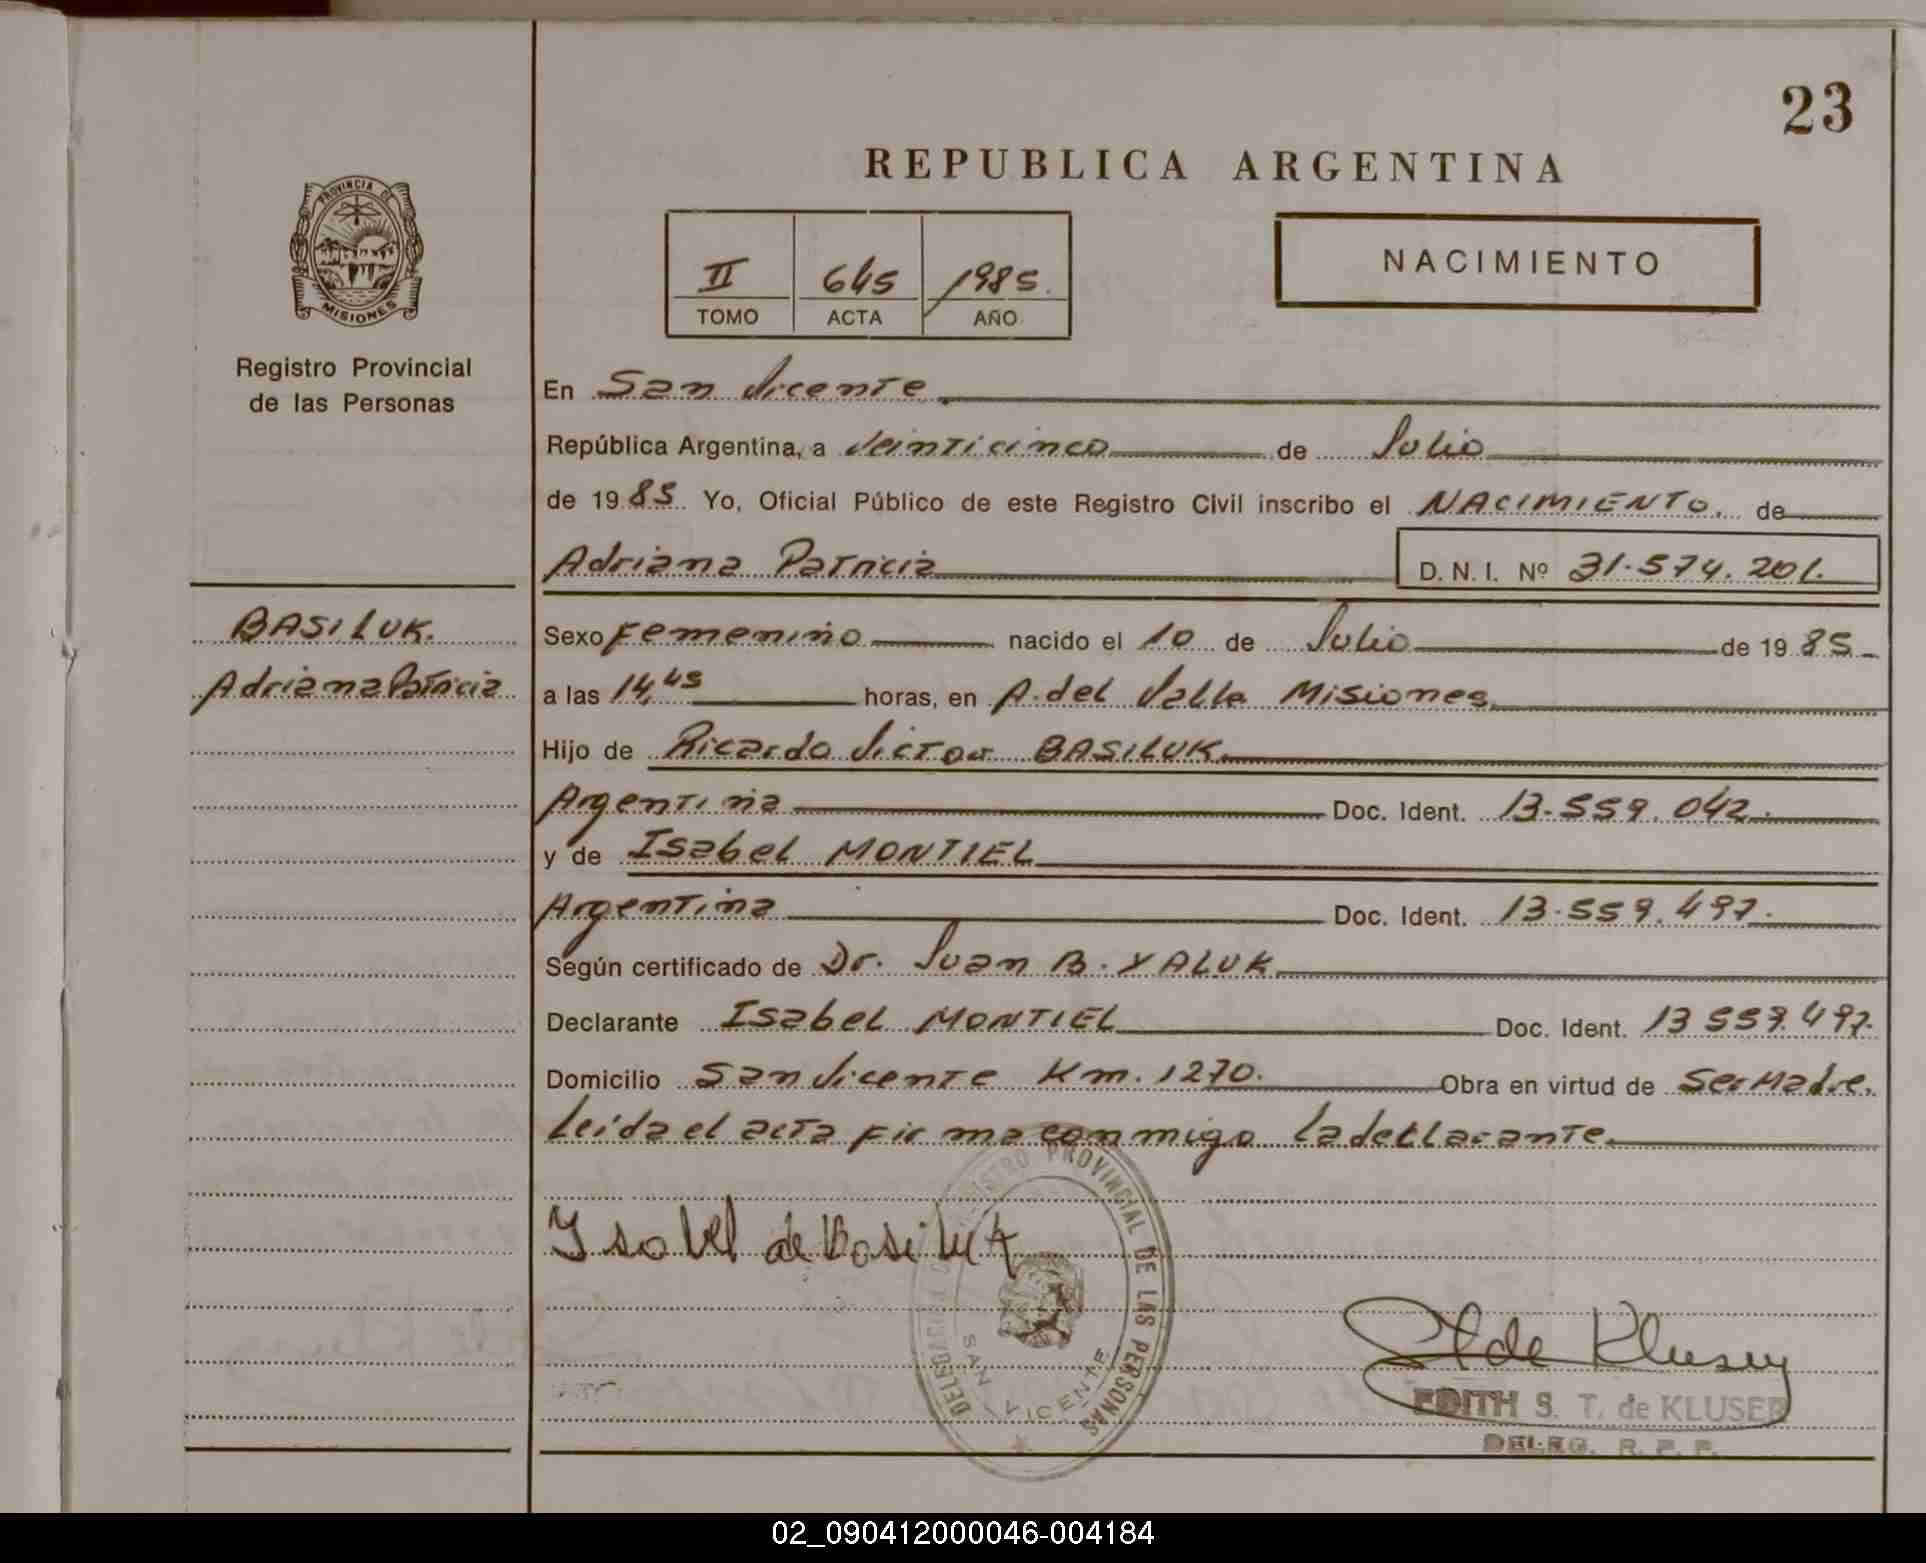 23
REPUBLICA ARGENTINA
PROVINCIA DE
MISIONES
Registro Provincial
de las Personas
II 645 1985.
TOMO ACTA AÑO
NACIMIENTO
En San Vicente
República Argentina, a Veinticinco de Julio
de 1985 Yo, Oficial Público de este Registro Civil inscribo el NACIMIENTO. de
Adriana Patricia D. N. I. Nº 31.574.201.
BASILUK.
Adriana Patricia
Sexo Femenino nacido el 10 de Julio de 1985
a las 14,45 horas, en A. del Valle Misiones
Hijo de Ricardo Victor BASILUK
Argentina Doc. Ident. 13.559.042.
y de Isabel MONTIEL
Argentina Doc. Ident. 13.559.497.
Según certificado de Dr. Juan B. YALUK
Declarante Isabel MONTIEL Doc. Ident. 13 559.497.
Domicilio San Vicente Km. 1270. Obra en virtud de Ser Madre.
Leída el acta firma conmigo la declarante.
Isabel de Basiluk
DELEGACION REGISTRO PROVINCIAL DE LAS PERSONAS
SAN VICENTE
E T de Kluser
EDITH S. T. de KLUSER
DELEG. R. P. P.
02_090412000046-004184